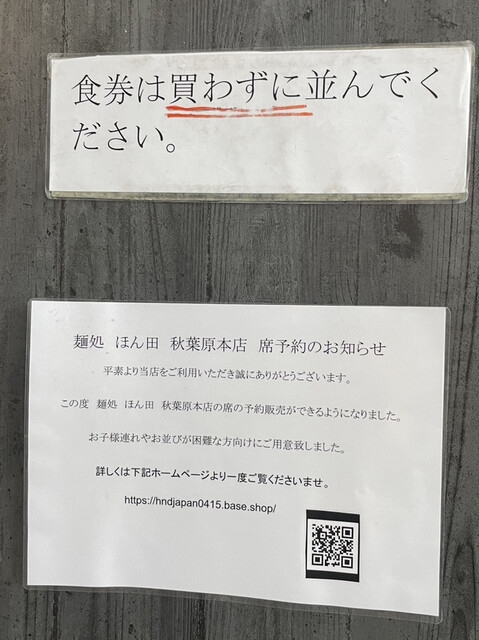 食券は買わずに並んでく
ださい。
麺処 ほん田 秋葉原本店 席予約のお知らせ
平素より当店をご利用いただき誠にありがとうございます。
この度 麺処 ほん田 秋葉原本店の席の予約販売ができるようになりました。
お子様連れやお並びが困難な方向けにご用意致しました。
詳しくは下記ホームページより一度ご覧くださいませ。
https://hndjapan0415.base.shop/